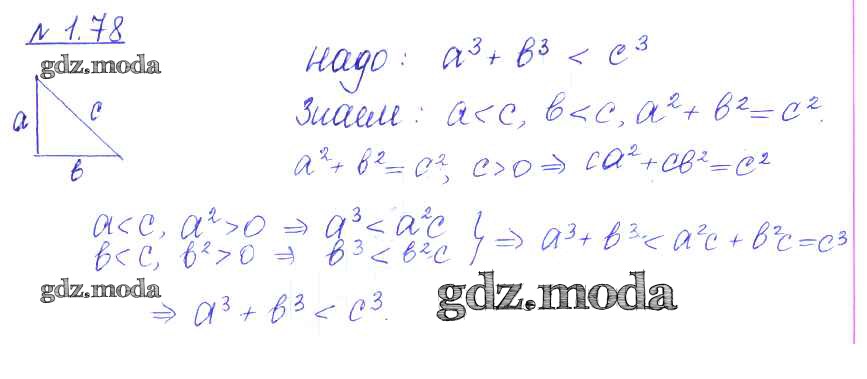 N 1.78
gdz.moda
a
c
b
надо: a³ + b³ < c³
Знаем: a < c, b < c, a² + b² = c².
a² + b² = c², c > 0 ⇒ ca² + cb² = c²
a < c, a² > 0 ⇒ a³ < a²c
b < c, b² > 0 ⇒ b³ < b²c
} ⇒ a³ + b³ < a²c + b²c = c³
gdz.moda
⇒ a³ + b³ < c³.
gdz.moda